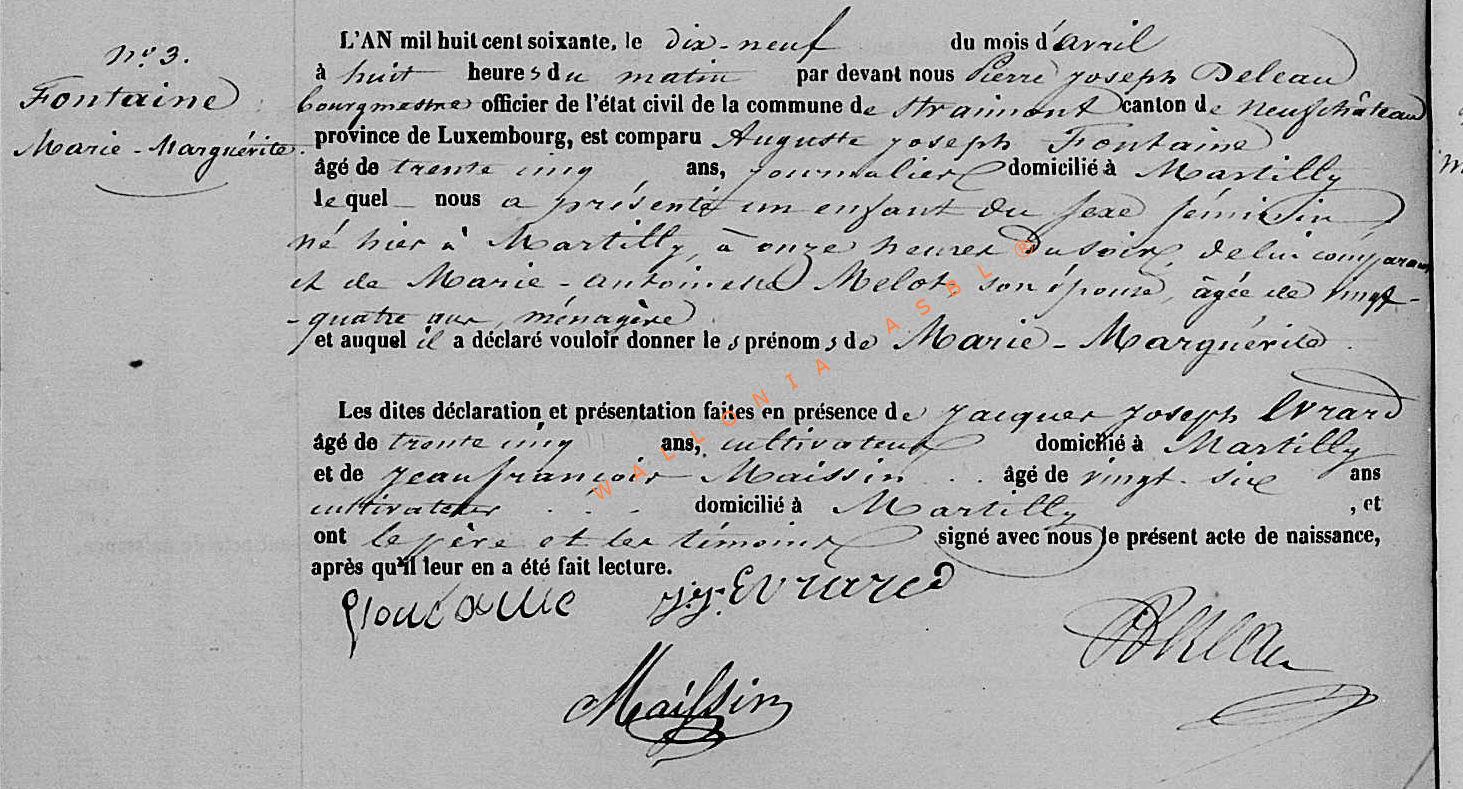 nº 3.
Fontaine
Marie-Marguérite.
L'AN mil huit cent soixante, le dix-neuf du mois d'avril
à huit heures du matin par devant nous Pierre Joseph Deleau
bourgmestre officier de l'état civil de la commune de Straimont canton de Neufchâteau
province de Luxembourg, est comparu Auguste Joseph Fontaine
âgé de trente cinq ans, journalier domicilié à Martilly
le quel nous a présenté un enfant du sexe féminin
né hier à Martilly, à onze heures du soir, de lui comparant
et de Marie-Antoinette Melot, son épouse, âgée de vingt-
-quatre ans, ménagère
et auquel il a déclaré vouloir donner les prénoms de Marie-Marguérite.
Les dites déclaration et présentation faites en présence de Jacques Joseph Evrard
âgé de trente cinq ans, cultivateur domicilié à Martilly
et de Jean françois Maissin . . âgé de vingt-six ans
cultivateur . . . domicilié à Martilly , et
ont le père et les témoins signé avec nous le présent acte de naissance,
après qu'il leur en a été fait lecture.
Fontaine J.J. Evrard
Deleau
Maissin
WALLONIA ASBL ®